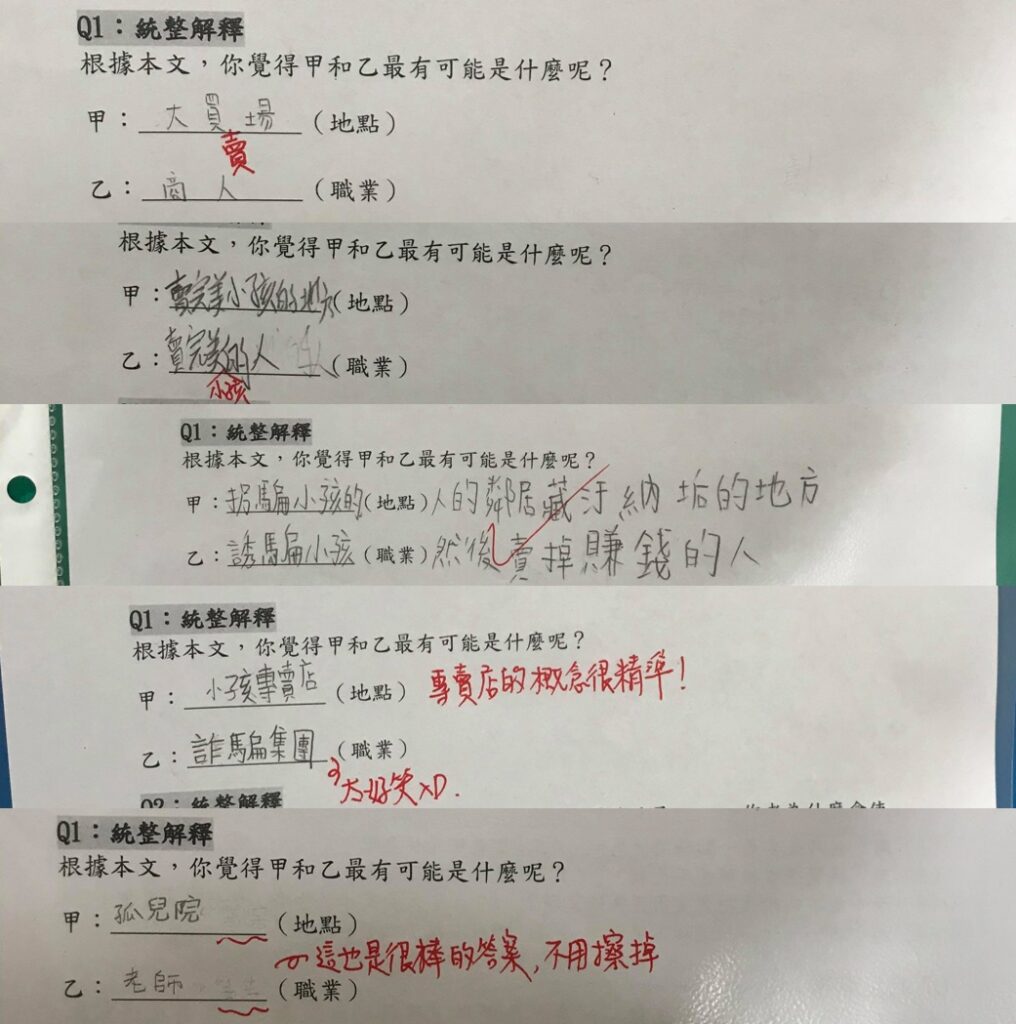 Q1：統整解釋
根據本文，你覺得甲和乙最有可能是什麼呢？
甲：大買場（地點）
賣
乙：商人（職業）
根據本文，你覺得甲和乙最有可能是什麼呢？
甲：賣完美小孩的地方（地點）
乙：賣完美的人（職業）
小孩
Q1：統整解釋
根據本文，你覺得甲和乙最有可能是什麼呢？
甲：拐騙小孩的（地點）人的鄰居藏汙納垢的地方
乙：誘騙小孩（職業）然後賣掉賺錢的人
Q1：統整解釋
根據本文，你覺得甲和乙最有可能是什麼呢？
甲：小孩專賣店（地點）專賣店的概念很精準！
乙：詐騙集團（職業）
太好笑XD.
Q2：統整解釋
Q1：統整解釋
根據本文，你覺得甲和乙最有可能是什麼呢？
甲：孤兒院（地點）
這也是很棒的答案，不用擦掉
乙：老師（職業）